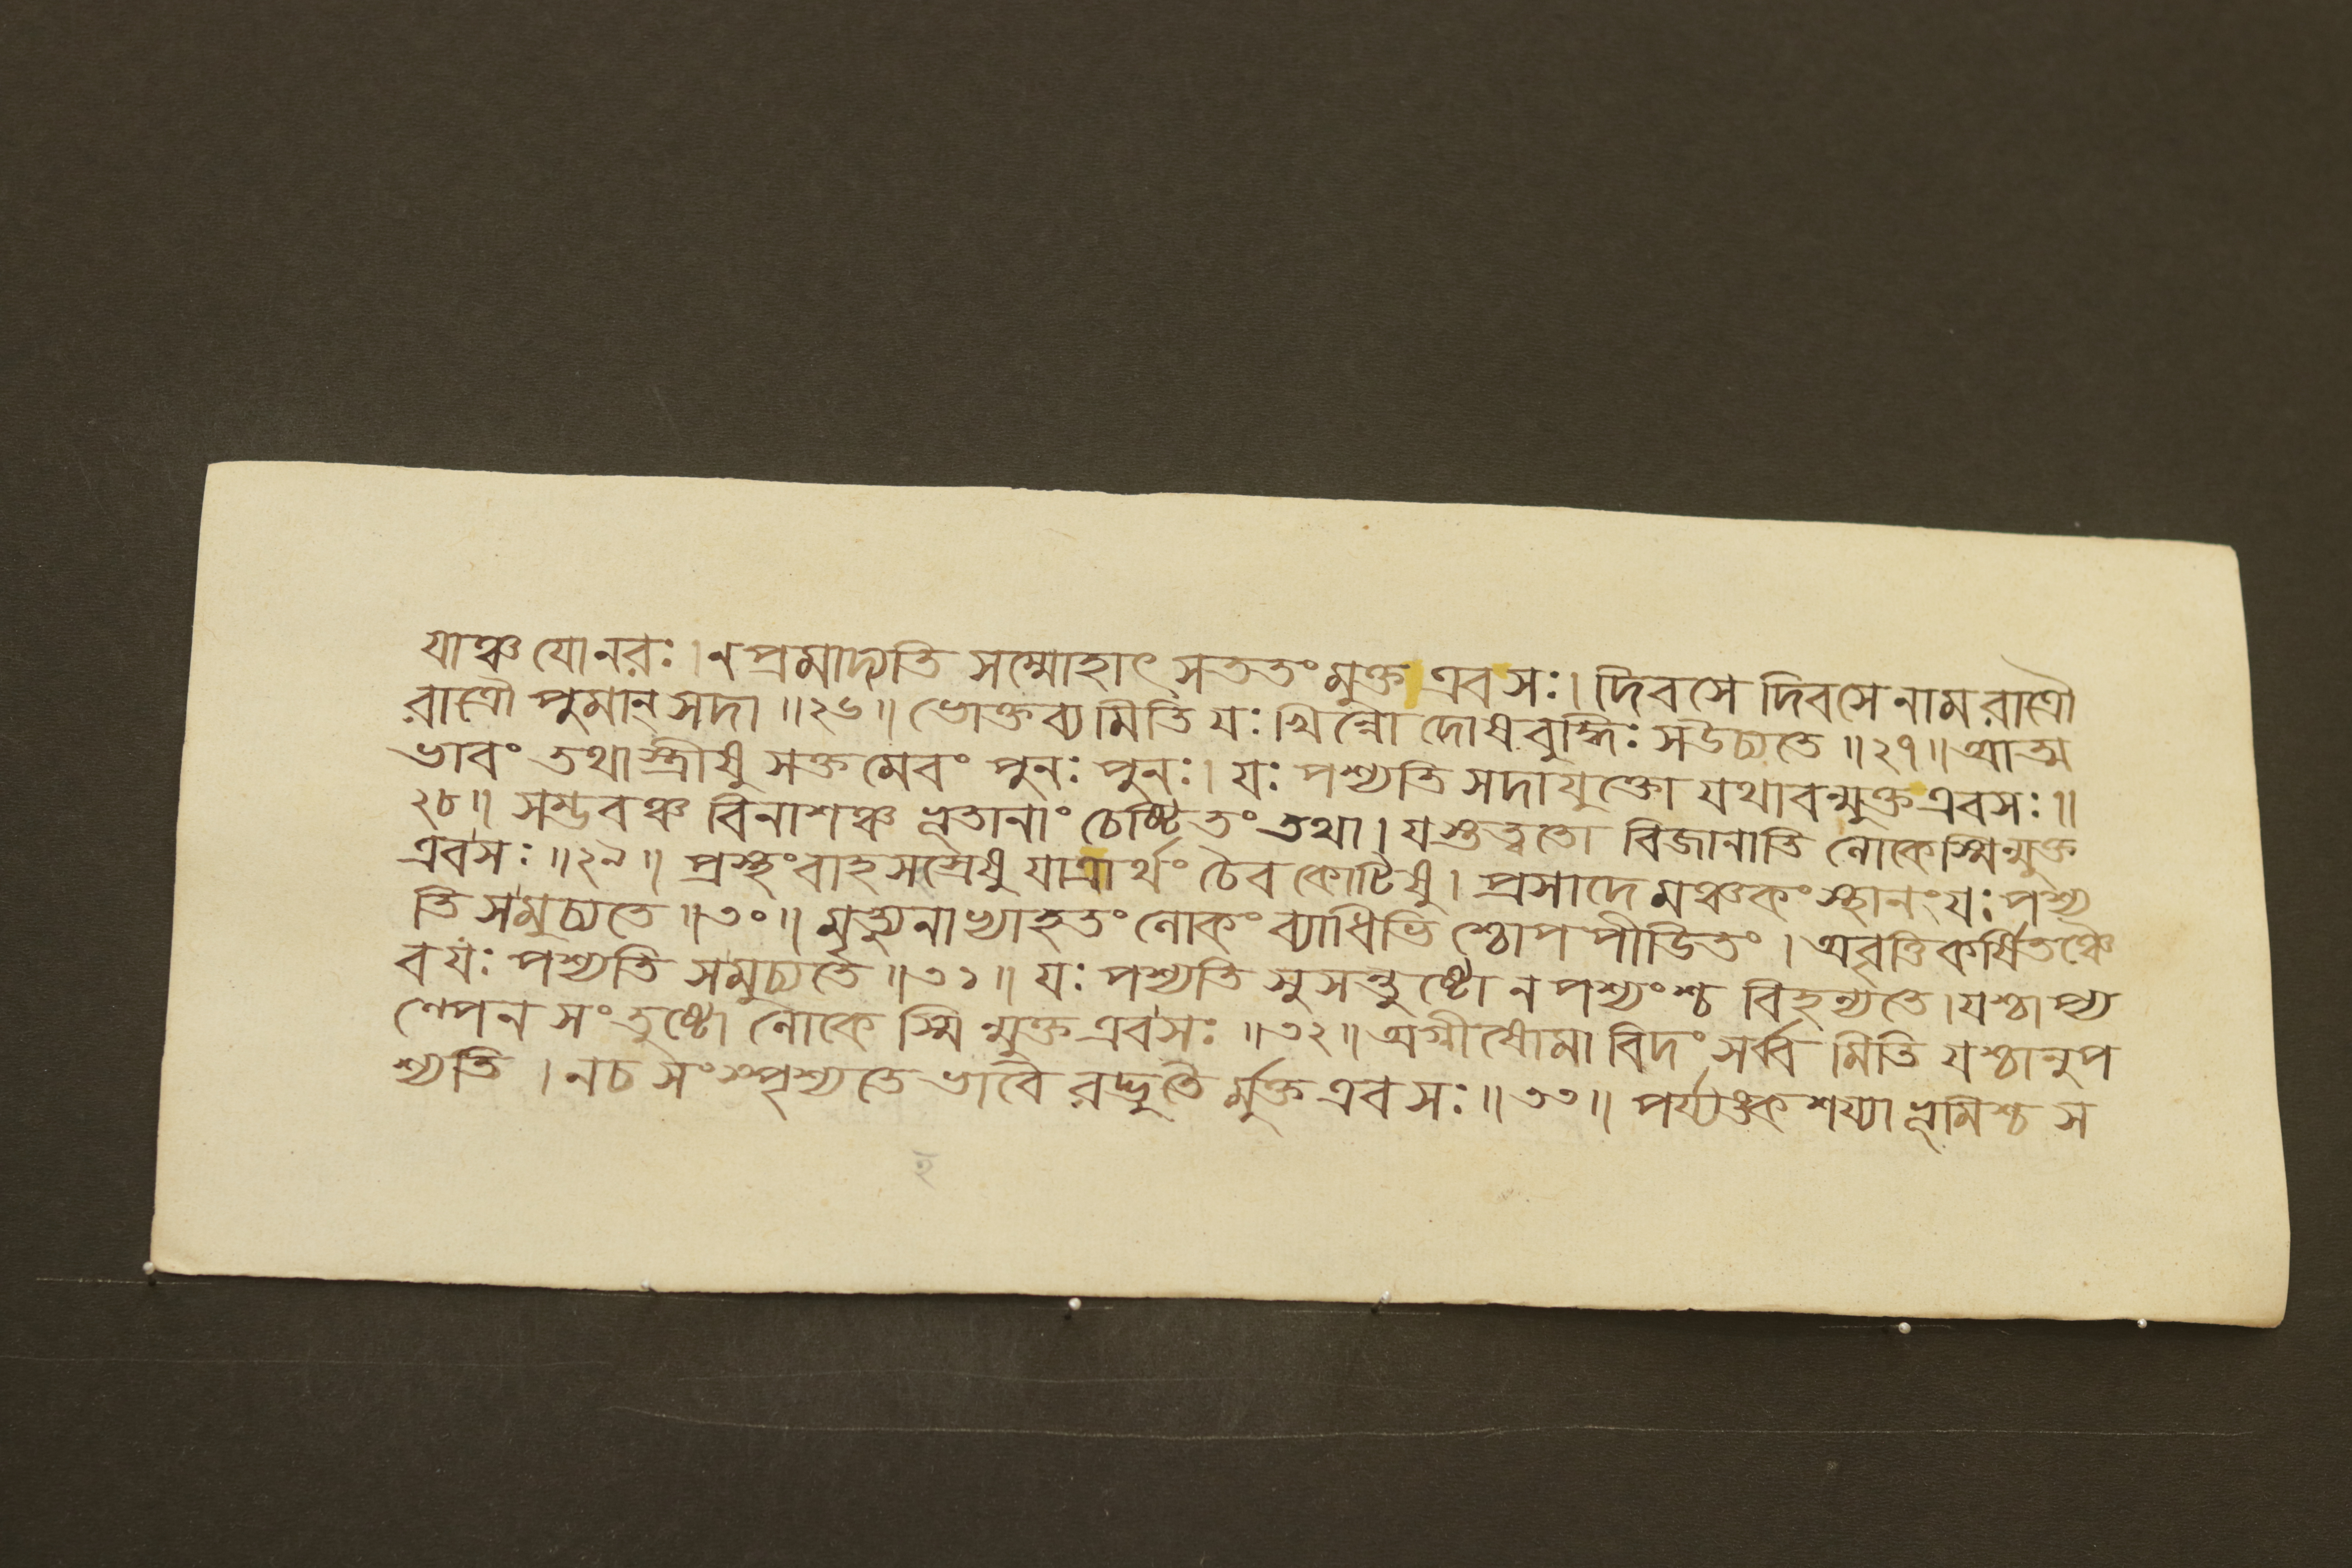 যাঞ্চ যোনরঃ। ন প্রমাদ্যতি সম্মোহাৎ সততং মুক্ত এবসঃ। দিবসে দিবসে নাম রাত্রৌ
রাত্রৌ পুমান্ সদা ॥২৬॥ ভোক্তব্য মিতি যঃ খিন্নো দোষ বুদ্ধিঃ সউচ্যতে ॥২৭॥ আত্ম
ভাবং তথা স্ত্রীষু সক্ত মেবং পুনঃ পুনঃ। যঃ পশ্যতি সদা যুক্তো যথাবন্মুক্ত এবসঃ॥
২৮॥ সম্ভবঞ্চ বিনাশঞ্চ ভূতানাং চেষ্টিতং তথা। যস্তত্ত্বতো বিজানাতি লোকেস্মিন্মুক্ত
এবসঃ ॥২৯॥ প্রস্থং বাহ সহস্রেষু যাত্রার্থং চৈব কোটিষু। প্রসাদে মঞ্চকং স্থানং যঃ পশ্য
তি সমুচ্যতে ॥৩০॥ মৃত্যুনাভ্যাহতং লোকং ব্যাধিভি শ্চোপ পীডিতং। অবৃত্তি কর্ষিতঞ্চৈ
ব যঃ পশ্যতি সমুচ্যতে ॥৩১॥ যঃ পশ্যতি সুসন্তুষ্টো ন পশ্যংশ্চ বিহন্যতে। যশ্চাপ্য
ল্পেন সংতুষ্টো লোকে স্মি ন্মুক্ত এবসঃ ॥৩২॥ অগ্নীষোমা বিদং সর্ব্ব মিতি যশ্চানুপ
শ্যতি। নচ সংস্পৃশ্যতে ভাবৈ রদ্ভুতৈ র্মুক্ত এবসঃ॥৩৩॥ পর্য্যঙ্ক শয্যা ভূমিশ্চ স